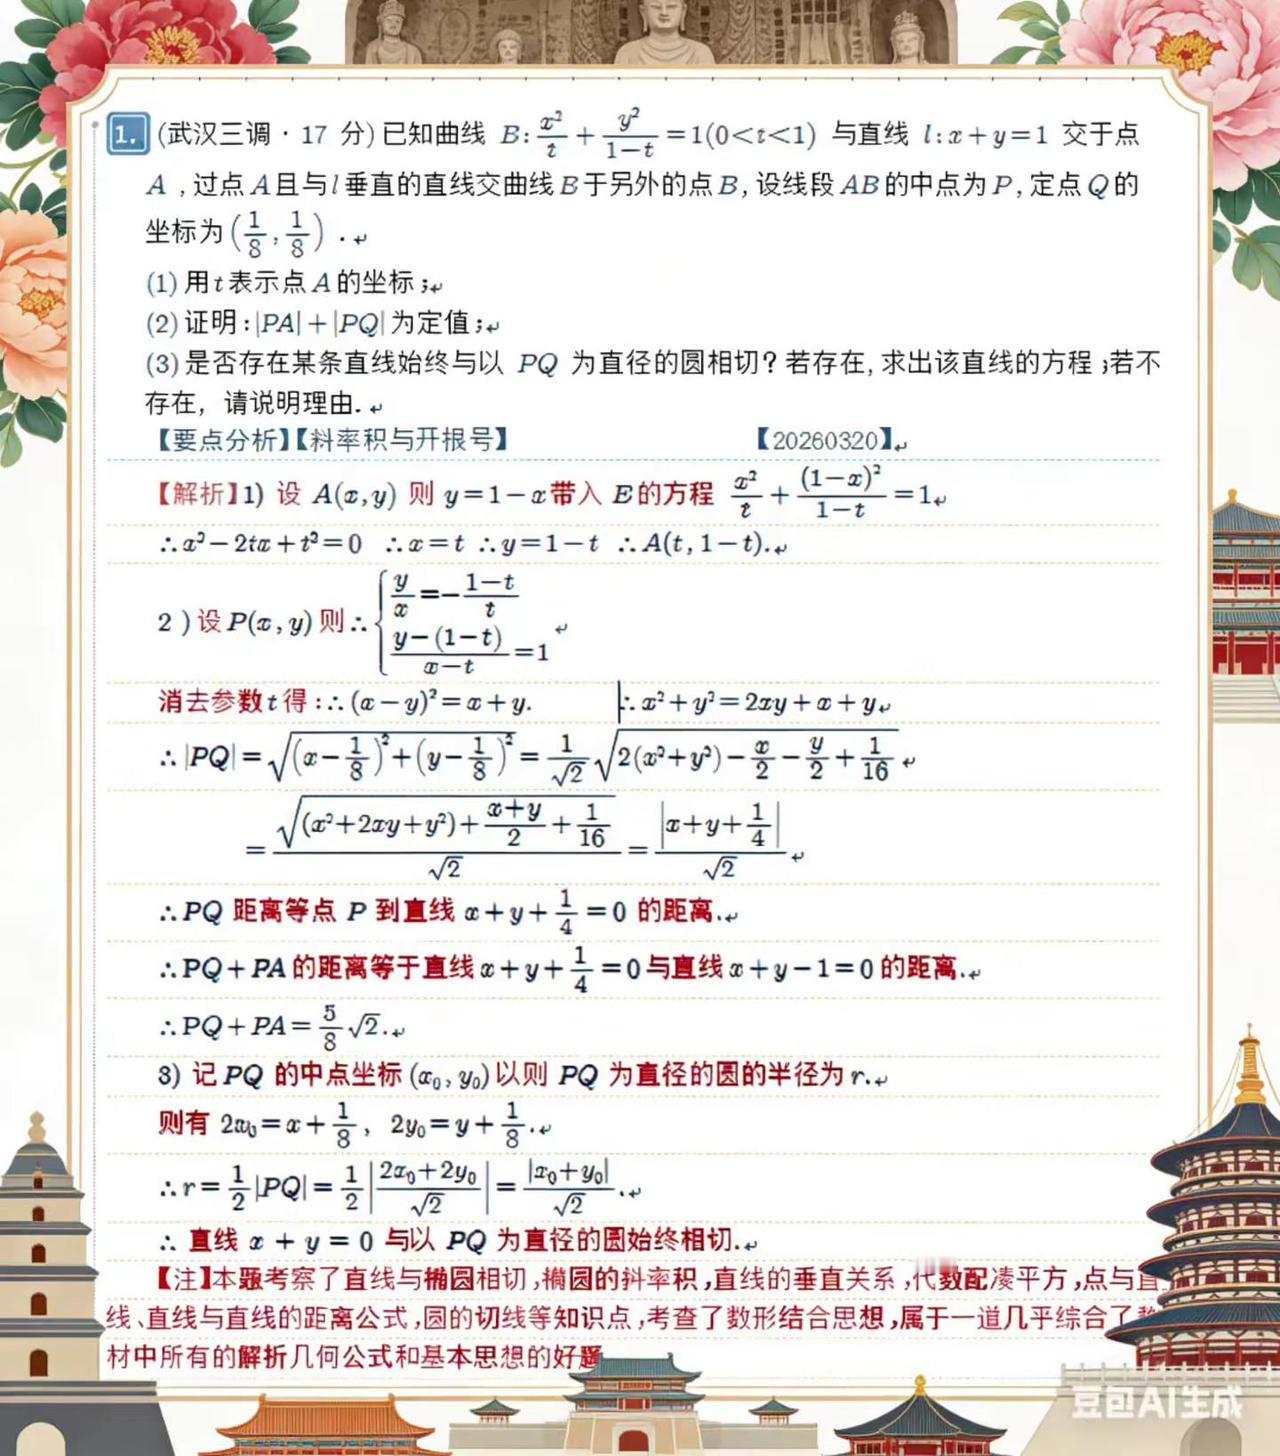 1. (武汉三调·17 分) 已知曲线 B: x²/t + y²/(1−t) = 1(0<t<1) 与直线 l: x+y=1 交于点
A ,过点 A 且与 l 垂直的直线交曲线 B 于另外的点 B, 设线段 AB 的中点为 P, 定点 Q 的
坐标为 (1/8, 1/8) .↵
(1) 用 t 表示点 A 的坐标 ;↵
(2) 证明: |PA| + |PQ| 为定值 ;↵
(3) 是否存在某条直线始终与以 PQ 为直径的圆相切? 若存在, 求出该直线的方程 ;若不
存在, 请说明理由. ↵
【要点分析】【料率积与开报号】 【20260320】↵
【解析】1) 设 A(x,y) 则 y=1−x 带入 E 的方程 x²/t + (1−x)²/(1−t) = 1↵
∴x²−2tx+t²=0 ∴x=t ∴y=1−t ∴A(t,1−t).↵
2 ) 设 P(x,y) 则 ∴ { y/x = −(1−t)/t
(y−(1−t))/(x−t) = 1 ↵
消去参数 t 得: ∴(x−y)²=x+y. ∴x²+y²=2xy+x+y↵
∴|PQ| = √((x−1/8)²+(y−1/8)²) = 1/√2 √(2(x²+y²)−x/2−y/2+1/16) ↵
= √((x²+2xy+y²)+(x+y)/2+1/16)/√2 = |x+y+1/4|/√2 ↵
∴PQ 距离等点 P 到直线 x+y+1/4=0 的距离.↵
∴PQ+PA 的距离等于直线 x+y+1/4=0 与直线 x+y−1=0 的距离.↵
∴PQ+PA= 5/8 √2.↵
3) 记 PQ 的中点坐标 (x₀,y₀) 以则 PQ 为直径的圆的半径为 r.↵
则有 2x₀=x+1/8, 2y₀=y+1/8.↵
∴r= 1/2 |PQ| = 1/2 |(2x₀+2y₀)/√2| = |x₀+y₀|/√2 .↵
∴ 直线 x + y = 0 与以 PQ 为直径的圆始终相切.↵
【注】本题考察了直线与椭圆相切 ,椭圆的斜率积 ,直线的垂直关系 ,代数配凑平方 ,点与直
线、直线与直线的距离公式 ,圆的切线等知识点 ,考查了数形结合思想 ,属于一道几乎综合了教
材中所有的解析几何公式和基本思想的好题
豆包AI生成